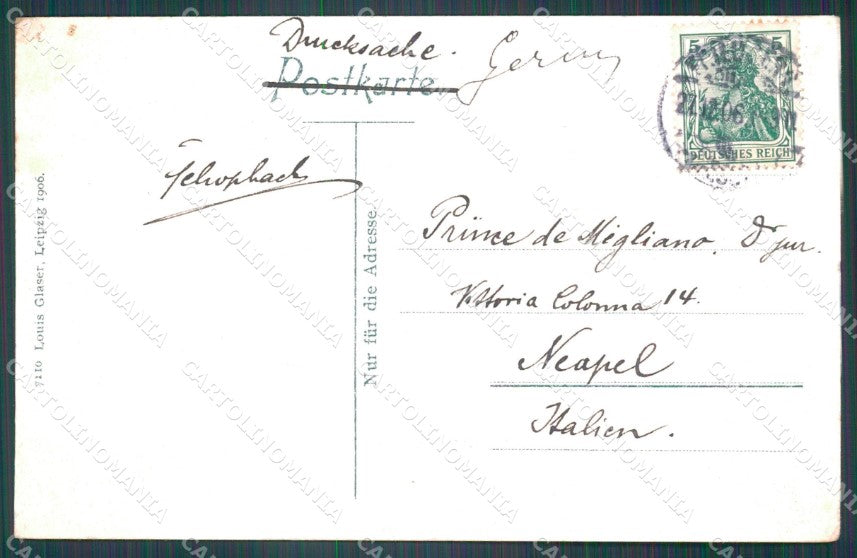 Drucksache.
Postkarte
5 5
27.12.06
DEUTSCHES REICH
7110 Louis Glaser, Leipzig 1906.
Nur für die Adresse.
Prince de Migliano. Dr jur.
Vittoria Colonna 14.
Neapel
Italien.
CARTOLINOMANIA